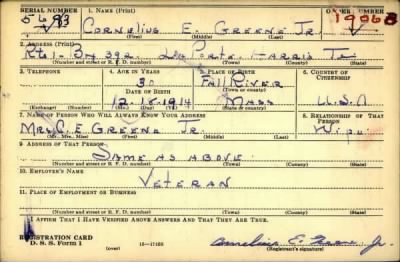 SERIAL NUMBER 1. NAME (Print) ORDER NUMBER
Cornelius E. Greene Jr. 19068
(First) (Middle) (Last)
2. ADDRESS (Print)
Rt 1 - Bx 392. La Porte. Harris Tx
(Number and street or R. F. D. number) (Town) (County) (State)
3. TELEPHONE 4. AGE IN YEARS 5. PLACE OF BIRTH 6. COUNTRY OF CITIZENSHIP
30 Fall River
DATE OF BIRTH (Town or county)
12.18.1914 Mass U.S.A
(Exchange) (Number) (Mo.) (Day) (Yr.) (State or country)
7. NAME OF PERSON WHO WILL ALWAYS KNOW YOUR ADDRESS 8. RELATIONSHIP OF THAT PERSON
Mrs. C. E Greene Jr. Wife
(Mr., Mrs., Miss) (First) (Middle) (Last)
9. ADDRESS OF THAT PERSON
Same as above
(Number and street or R. F. D. number) (Town) (County) (State)
10. EMPLOYER'S NAME
Veteran
11. PLACE OF EMPLOYMENT OR BUSINESS
(Number and street or R. F. D. number) (Town) (County) (State)
I AFFIRM THAT I HAVE VERIFIED ABOVE ANSWERS AND THAT THEY ARE TRUE.
REGISTRATION CARD
D. S. S. Form 1 Cornelius E. Greene Jr.
(Registrant's signature)